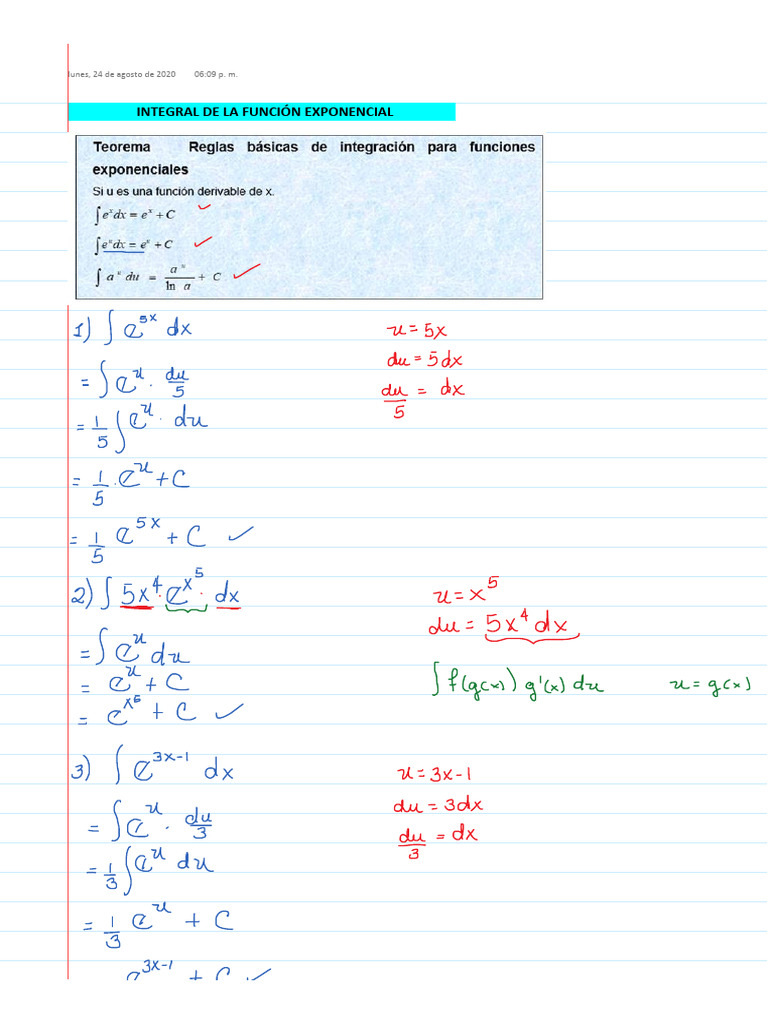 lunes, 24 de agosto de 2020 06:09 p. m.
INTEGRAL DE LA FUNCIÓN EXPONENCIAL
Teorema Reglas básicas de integración para funciones
exponenciales
Si u es una función derivable de x.
∫eˣdx = eˣ + C ✓
∫eᵘdx = eᵘ + C ✓
∫ aᵘ du = aᵘ/ln a + C ✓
1) ∫ e^5x dx u = 5x
= ∫ e^u · du/5 du = 5dx
= 1/5 ∫ e^u · du du/5 = dx
= 1/5 · e^u + C
= 1/5 e^5x + C ✓
2) ∫ 5x^4 · e^x^5 · dx u = x^5
du = 5x^4 dx
= ∫ e^u du
= e^u + C ∫ f(g(x)) g'(x) du u = g(x)
= e^x^5 + C ✓
3) ∫ e^3x-1 dx u = 3x-1
= ∫ e^u · du/3 du = 3dx
= 1/3 ∫ e^u du du/3 = dx
= 1/3 e^u + C
e^3x-1 + C ✓